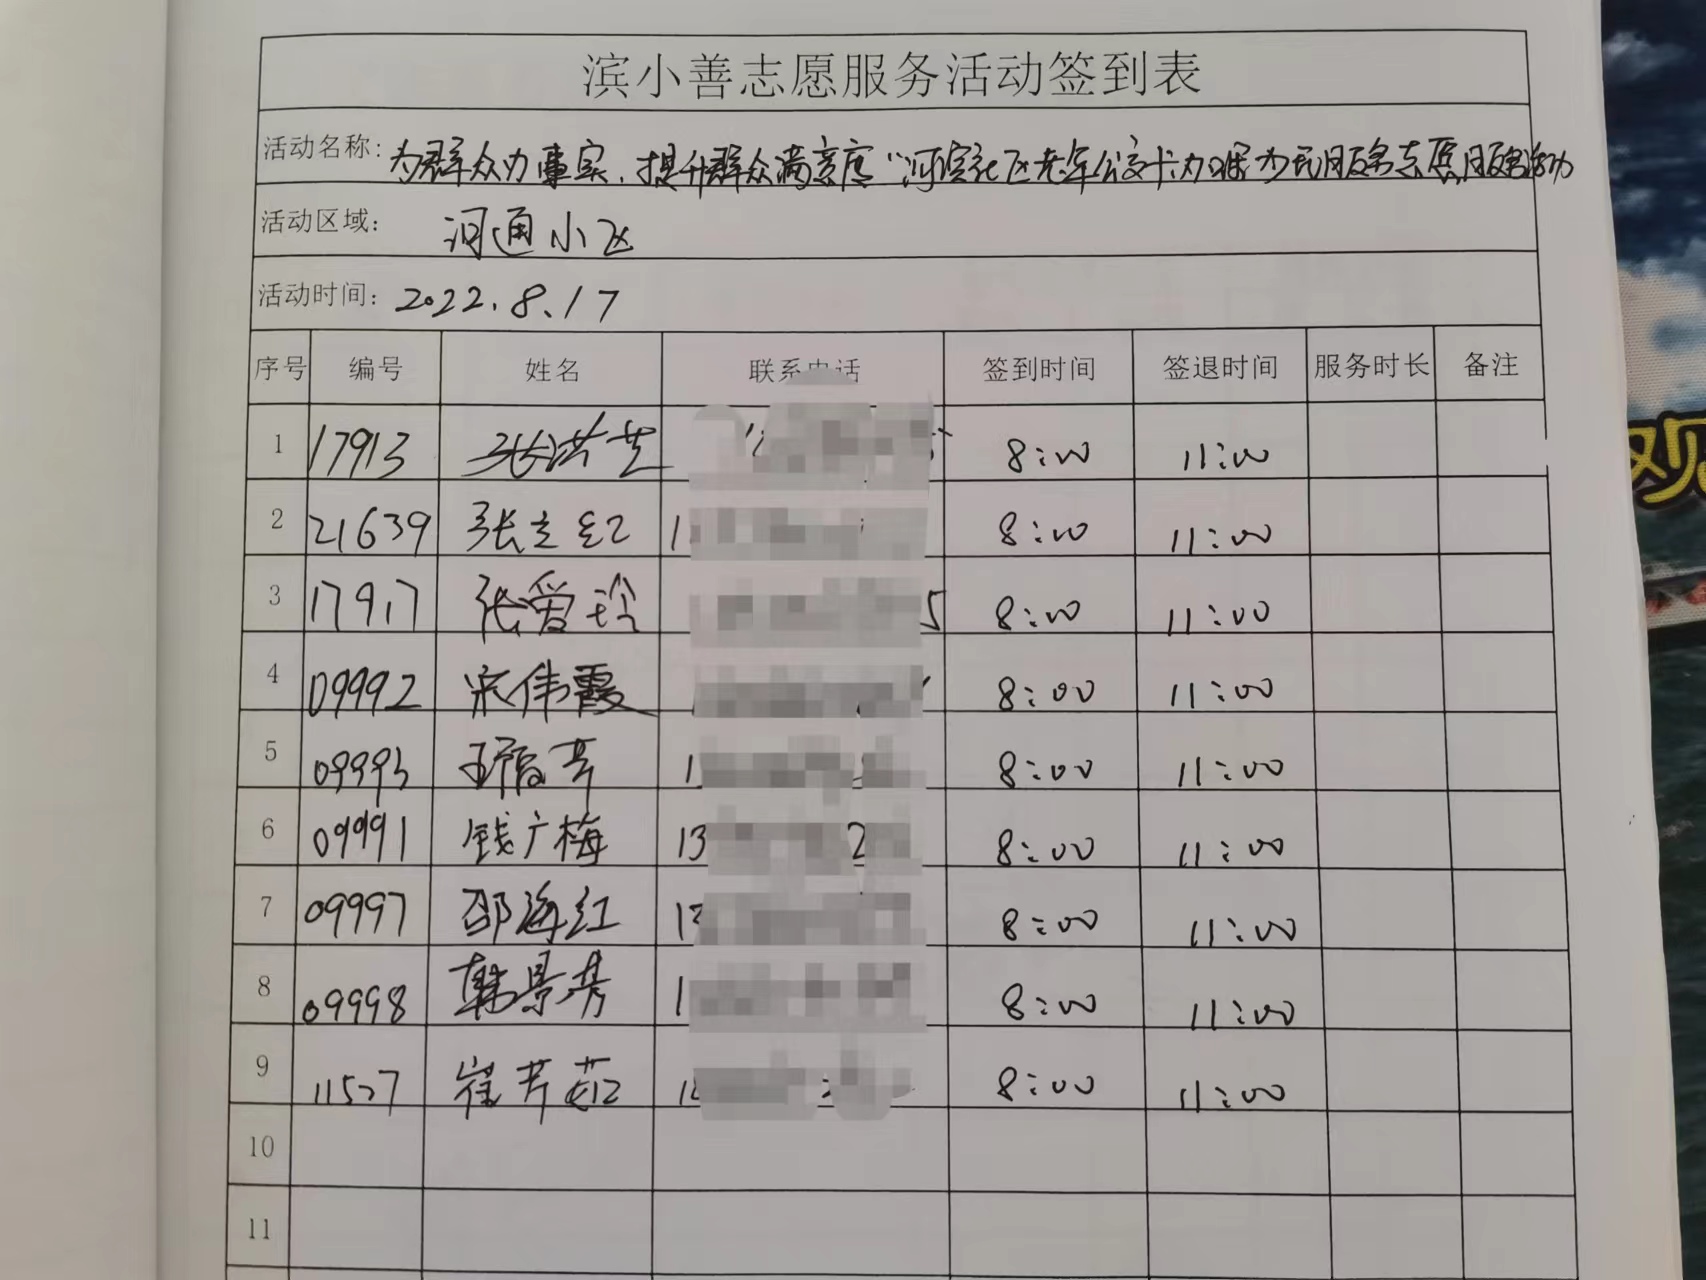 滨小善志愿服务活动签到表
活动名称: 为群众办事实、提升群众满意度"河滨社区老年公交卡办理为民服务志愿服务活动
活动区域: 河通小区
活动时间: 2022.8.17
序号 编号 姓名 联系电话 签到时间 签退时间 服务时长 备注
1 17913 张洪芝 8:00 11:00
2 21639 张立红 1 8:00 11:00
3 17917 张爱玲 5 8:00 11:00
4 09992 宋伟霞 8:00 11:00
5 09993 王福芹 1 8:00 11:00
6 09991 钱广梅 13 2 8:00 11:00
7 09997 邵海红 1 8:00 11:00
8 09998 韩景秀 1 8:00 11:00
9 11527 崔芹茹 1 8:00 11:00
10
11
观